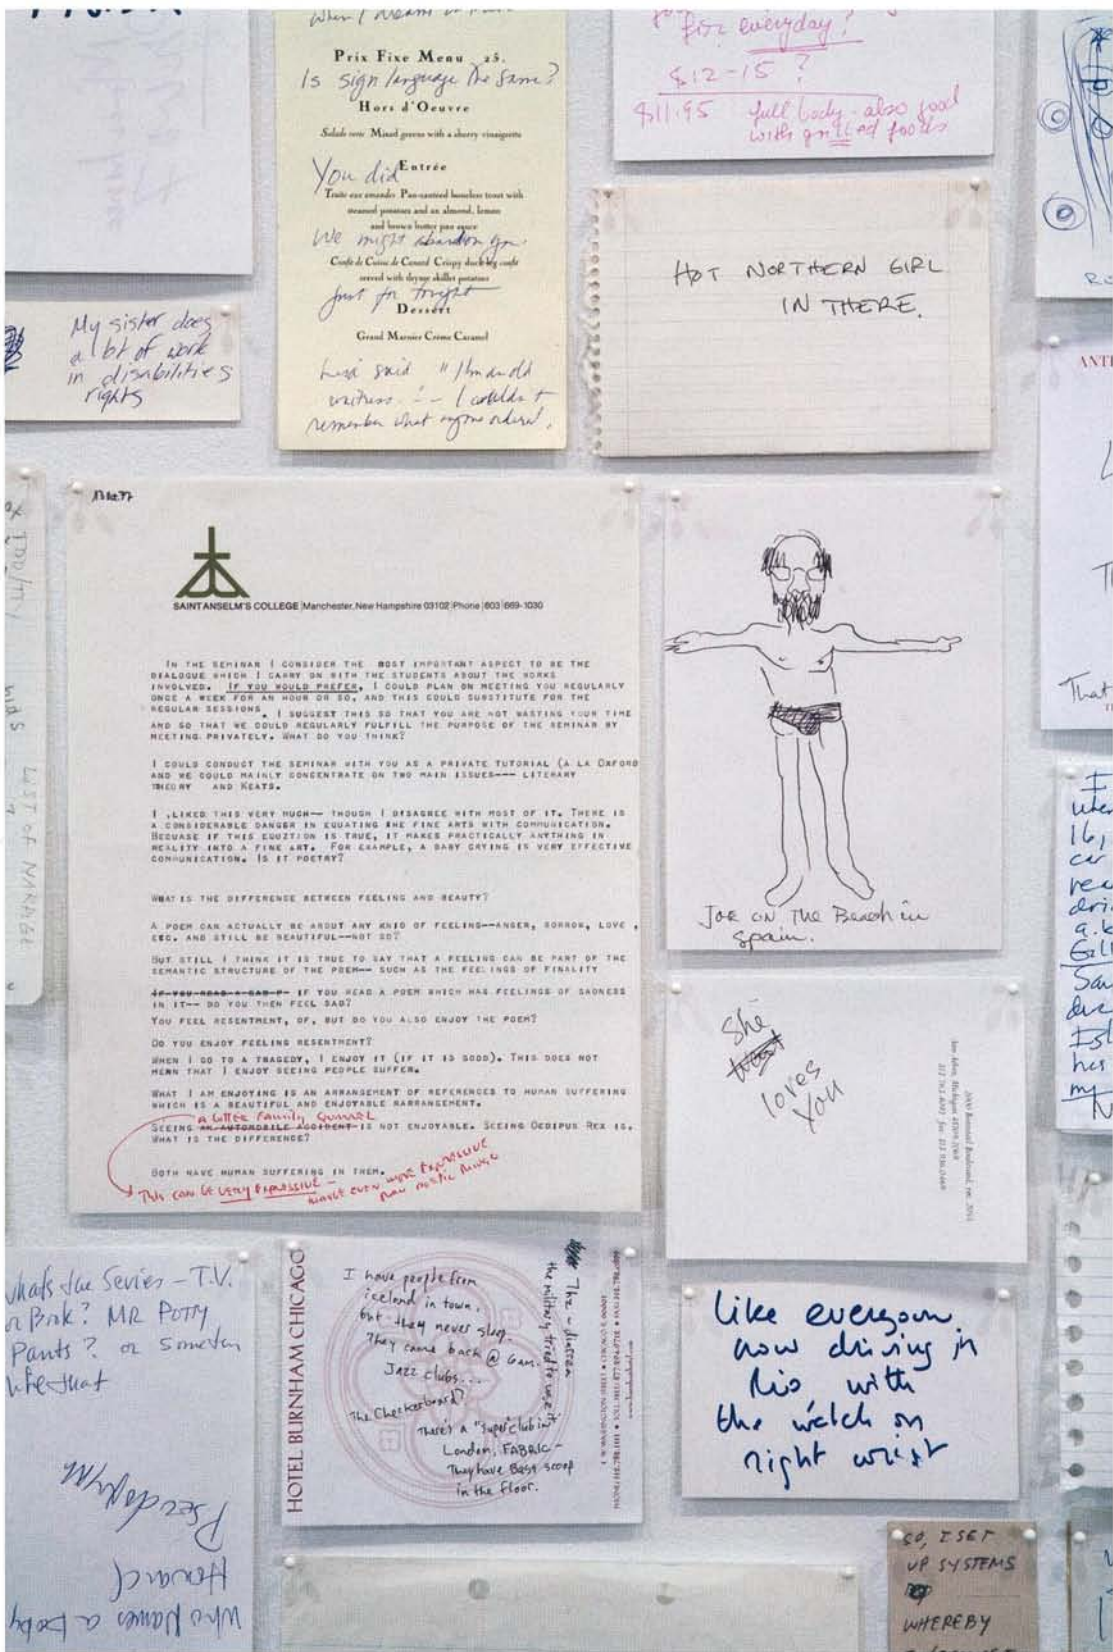 Prix Fixe Menu 25.
Is sign language the same?
Hors d'Oeuvre
Salade verte Mixed greens with a sherry vinaigrette
You did
Entrée
Truite aux amandes Pan-sauteed boneless trout with
steamed potatoes and an almond, lemon
and brown butter pan sauce
We might abandon you.
Confit de Cuisse de Canard Crispy duck leg confit
served with thyme skillet potatoes
Just for tonight
Dessert
Grand Marnier Crème Caramel
Lisa said "I'm an old
waitress" — I couldn't
remember what anyone ordered.
for everyday?
$12-15 ?
$11.95 full body - also good
with grilled foods
HOT NORTHERN GIRL
IN THERE.
My sister does
a lot of work
in disabilities
rights
SAINT ANSELM'S COLLEGE Manchester, New Hampshire 03102 Phone 603 669-1030
IN THE SEMINAR I CONSIDER THE MOST IMPORTANT ASPECT TO BE THE
DIALOGUE WHICH I CARRY ON WITH THE STUDENTS ABOUT THE WORKS
INVOLVED. IF YOU WOULD PREFER, I COULD PLAN ON MEETING YOU REGULARLY
ONCE A WEEK FOR AN HOUR OR SO, AND THIS COULD SUBSTITUTE FOR THE
REGULAR SESSIONS. I SUGGEST THIS SO THAT YOU ARE NOT WASTING YOUR TIME
AND SO THAT WE COULD REGULARLY FULFILL THE PURPOSE OF THE SEMINAR BY
MEETING PRIVATELY. WHAT DO YOU THINK?
I COULD CONDUCT THE SEMINAR WITH YOU AS A PRIVATE TUTORIAL (A LA OXFORD
AND WE COULD MAINLY CONCENTRATE ON TWO MAIN ISSUES--- LITERARY
THEORY AND KEATS.
I LIKED THIS VERY MUCH-- THOUGH I DISAGREE WITH MOST OF IT. THERE IS
A CONSIDERABLE DANGER IN EQUATING THE FINE ARTS WITH COMMUNICATION.
BECUASE IF THIS EQUZTION IS TRUE, IT MAKES PRACTICALLY ANYTHING IN
REALITY INTO A FINE ART. FOR EXAMPLE, A BABY CRYING IS VERY EFFECTIVE
COMMUNICATION. IS IT POETRY?
WHAT IS THE DIFFERENCE BETWEEN FEELING AND BEAUTY?
A POEM CAN ACTUALLY BE ABOUT ANY KNID OF FEELING--ANGER, SORROW, LOVE ,
ETC. AND STILL BE BEAUTIFUL--NOT SO?
BUT STILL I THINK IT IS TRUE TO SAY THAT A FEELING CAN BE PART OF THE
SEMANTIC STRUCTURE OF THE POEM-- SUCH AS THE FEELINGS OF FINALITY
IF YOU READ A SAD P- IF YOU READ A POEM WHICH HAS FEELINGS OF SADNESS
IN IT-- DO YOU THEN FEEL SAD?
YOU FEEL RESENTMENT, OF, BUT DO YOU ALSO ENJOY THE POEM?
DO YOU ENJOY FEELING RESENTMENT?
WHEN I GO TO A TRAGEDY, I ENJOY IT (IF IT IS GOOD). THIS DOES NOT
MEAN THAT I ENJOY SEEING PEOPLE SUFFER.
WHAT I AM ENJOYING IS AN ARRANGEMENT OF REFERENCES TO HUMAN SUFFERING
WHICH IS A BEAUTIFUL AND ENJOYABLE RARRANGEMENT.
a bitter family quarrel
SEEING AN AUTOMOBILE ACCIDENT IS NOT ENJOYABLE. SEEING OEDIPUS REX IS.
WHAT IS THE DIFFERENCE?
BOTH HAVE HUMAN SUFFERING IN THEM.
THIS CAN BE VERY EXPRESSIVE –
MAYBE EVEN MORE EXPRESSIVE
than poetic
JOE ON The Beach in
Spain.
She
loves
you
LIST OF MARRAGE
That
16,
car
my
whats the Series - T.V.
or Book? MR POTTY
Pants? or Someten
like that
Pseudonym
Howard
Who Names a baby
HOTEL BURNHAM CHICAGO
I have people from
iceland in town.
but they never sleep.
They came back @ 6am.
Jazz clubs...
The Checkerboard?
There's a "super" club in
London, FABRIC -
They have Bass scoop
in the floor.
the military tried to use it
Like everyone
now driving in
Rio with
the watch on
right wrist
SO, I SET
UP SYSTEMS
WHEREBY